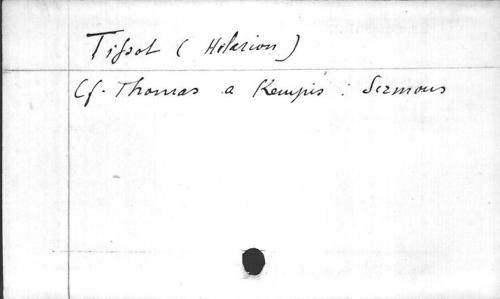 Tissot (Hilarion)
Cf. Thomas a Kempis : Sermons